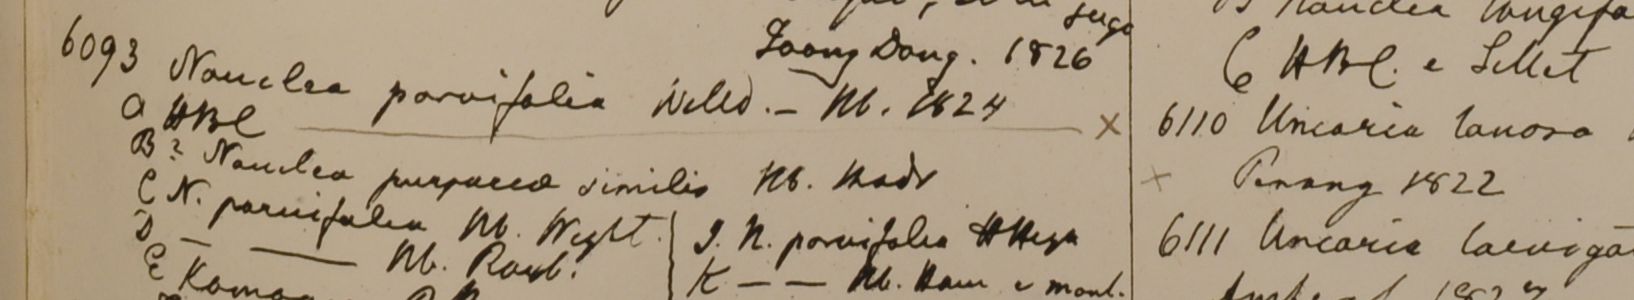 Toong Dong. 1826
6093 Nauclea parvifolia Willd. – Hb. 1824
a HBC
B? Nauclea purpurea similis Hb. Madr
C N. parvifolia Hb. Wight.
D — —— Hb. Roxb.
E
J. N. parvifolia HHeyn
K — — Hb. Ham e mont.
Nauclea longifo
C HBC. e Sillet
6110 Uncaria lanosa
Penang 1822
6111 Uncaria laeviga